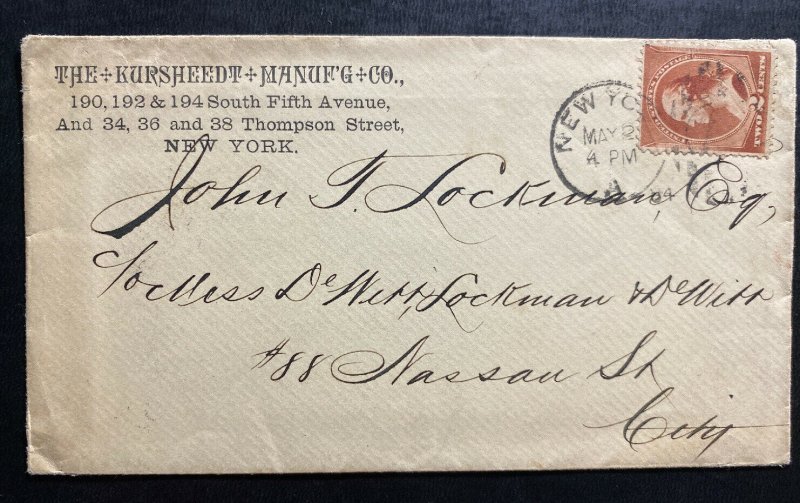 THE + KURSHEEDT + MANUF'G + CO.,
190, 192 & 194 South Fifth Avenue,
And 34, 36 and 38 Thompson Street,
NEW YORK.
NEW YO
MAY 2
4 PM
84
TWO 2 CENTS
John T. Lockman, Esq,
c/o Mess De Witt, Lockman & De Witt
#88 Nassau St
City